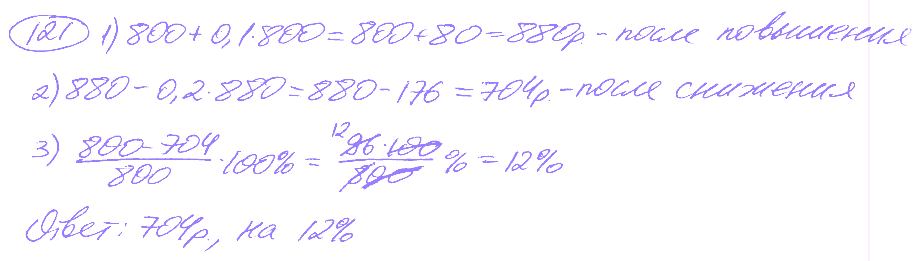 121 1) 800 + 0,1·800 = 800 + 80 = 880р. - после повышения
2) 880 - 0,2·880 = 880 - 176 = 704р. - после снижения
3) (800-704)/800 · 100% = (12 96·100)/800 % = 12%
Ответ: 704р., на 12%